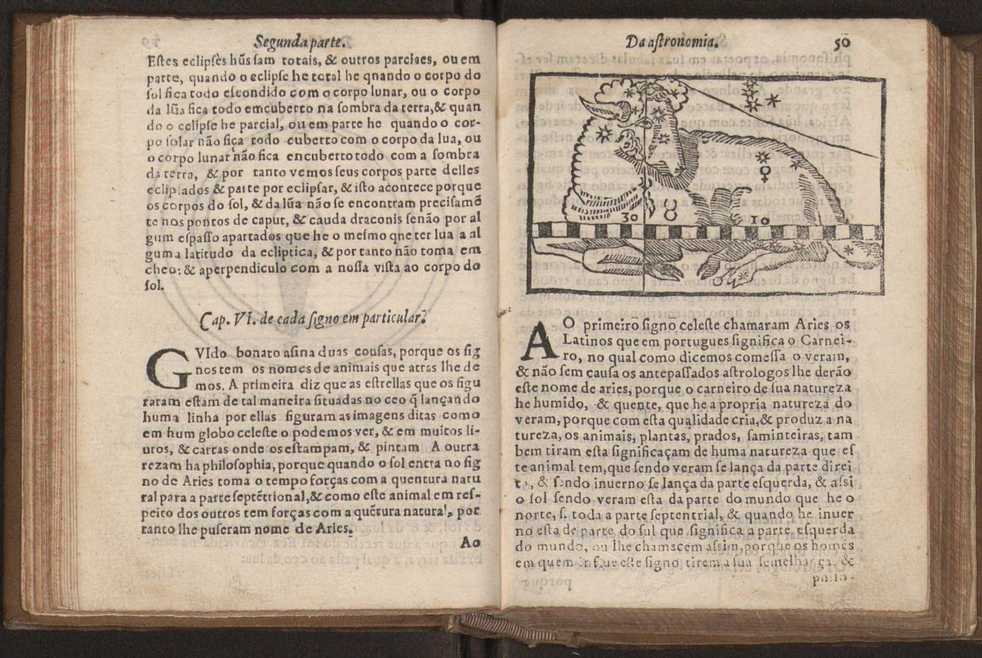 Segunda parte.
Estes eclipses hũs sam totais, & outros parciaes, ou em
parte, quando o eclipse he total he qnando o corpo do
sol fica todo escondido com o corpo lunar, ou o corpo
da lũa fica todo emcuberto na sombra da terra,& quan
do o eclipse he parcial, ou em parte he quando o cor-
po solar não fica todo cuberto com o corpo da lua, ou
o corpo lunar não fica encuberto todo com a sombra
da terra, & por tanto vemos seus corpos parte delles
eclipsados & parte por eclipsar, & isto acontece porque
os corpos do sol, & da lũa não se encontram precisamẽ
te nos pontos de caput, & cauda draconis senão por al
gum espasso apartados que he o mesmo qne ter lua a al
guma latitudo da ecliptica, & por tanto não toma em
cheo: & aperpendiculo com a nossa vista ao corpo do
sol.
Cap. VI. de cada signo em particular?
GVIdo bonato asina duas cousas, porque os sig
nos tem os nomes de animais que atras lhe de
mos. A primeira diz que as estrellas que os figu
raram estam de tal maneira situadas no ceo q̃ lançando
huma linha por ellas figuram as imagens ditas como
em hum globo celeste o podemos ver, & em muitos li-
uros, & cartas onde os estampam, & pintam A outra
rezam ha philosophia, porque quando o sol entra no sig
no de Aries toma o tempo forças com a quentura natu
ral para a parte septẽtrional,& como este animal em res-
peito dos outros tem forças com a quẽtura natural, por
tanto lhe puseram nome de Aries.
Ao
Da astronomia.
50
30
♉
10
AO primeiro signo celeste chamaram Aries os
Latinos que em portugues significa o Carnei-
ro, no qual como dicemos comessa o veram,
& não sem causa os antepassados astrologos lhe derão
este nome de aries, porque o carneiro de sua natureza
he humido, & quente, que he a propria natureza do
veram, porque com esta qualidade cria,& produz a na
tureza, os animais, plantas, prados, saminteiras, tam
bem tiram esta significaçam de huma natureza que es
te animal tem, que sendo veram se lança da parte direi
& sendo inuerno se lança da parte esquerda, & assi
o sol sendo veram esta da parte do mundo que he o
norte, s. toda a parte septentrial, & quando he inuer
no esta de parte do sul que significa a parte esquerda
do mundo, ou lhe chamacem assim, porque os homẽs
em quem este signo tirem a sua semelhança, &